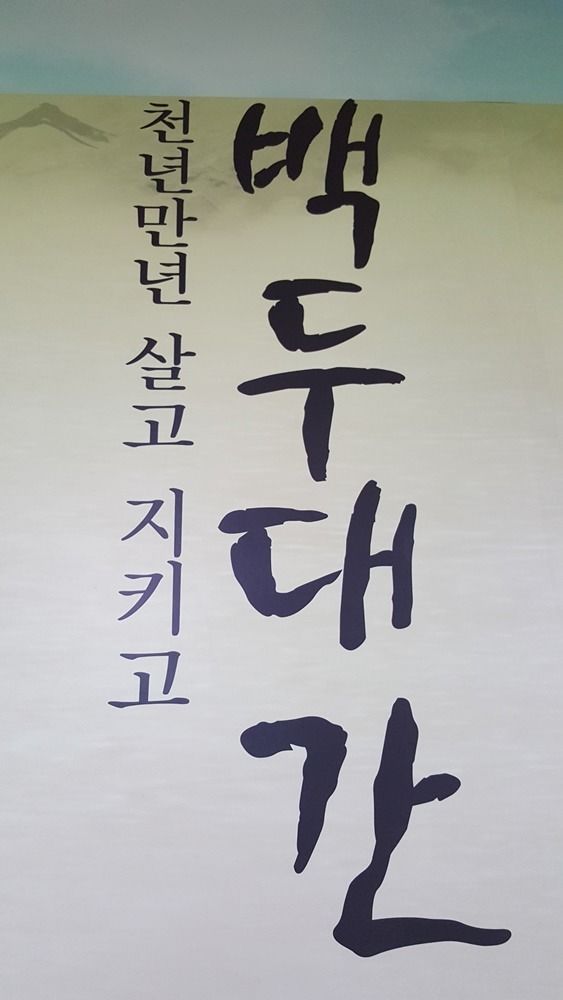 백두대간
천년만년 살고 지키고